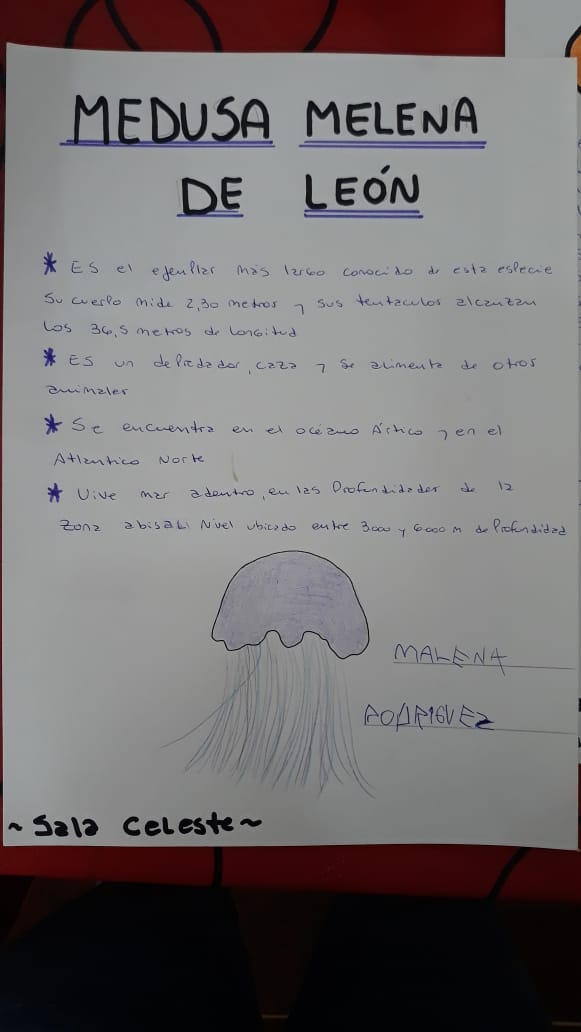 MEDUSA MELENA
DE LEÓN
* Es el ejemplar más largo conocido de esta especie
Su cuerpo mide 2,30 metros y sus tentaculos alcanzan
los 36,5 metros de longitud
* Es un depredador, caza y se alimenta de otros
animales
* Se encuentra en el océano Ártico y en el
Atlantico Norte
* Vive mar adentro, en las profundidades de la
zona abisal: Nivel ubicado entre 3000 y 6000 m de profundidad
MALENA
RODRIGUEZ
~ Sala Celeste ~